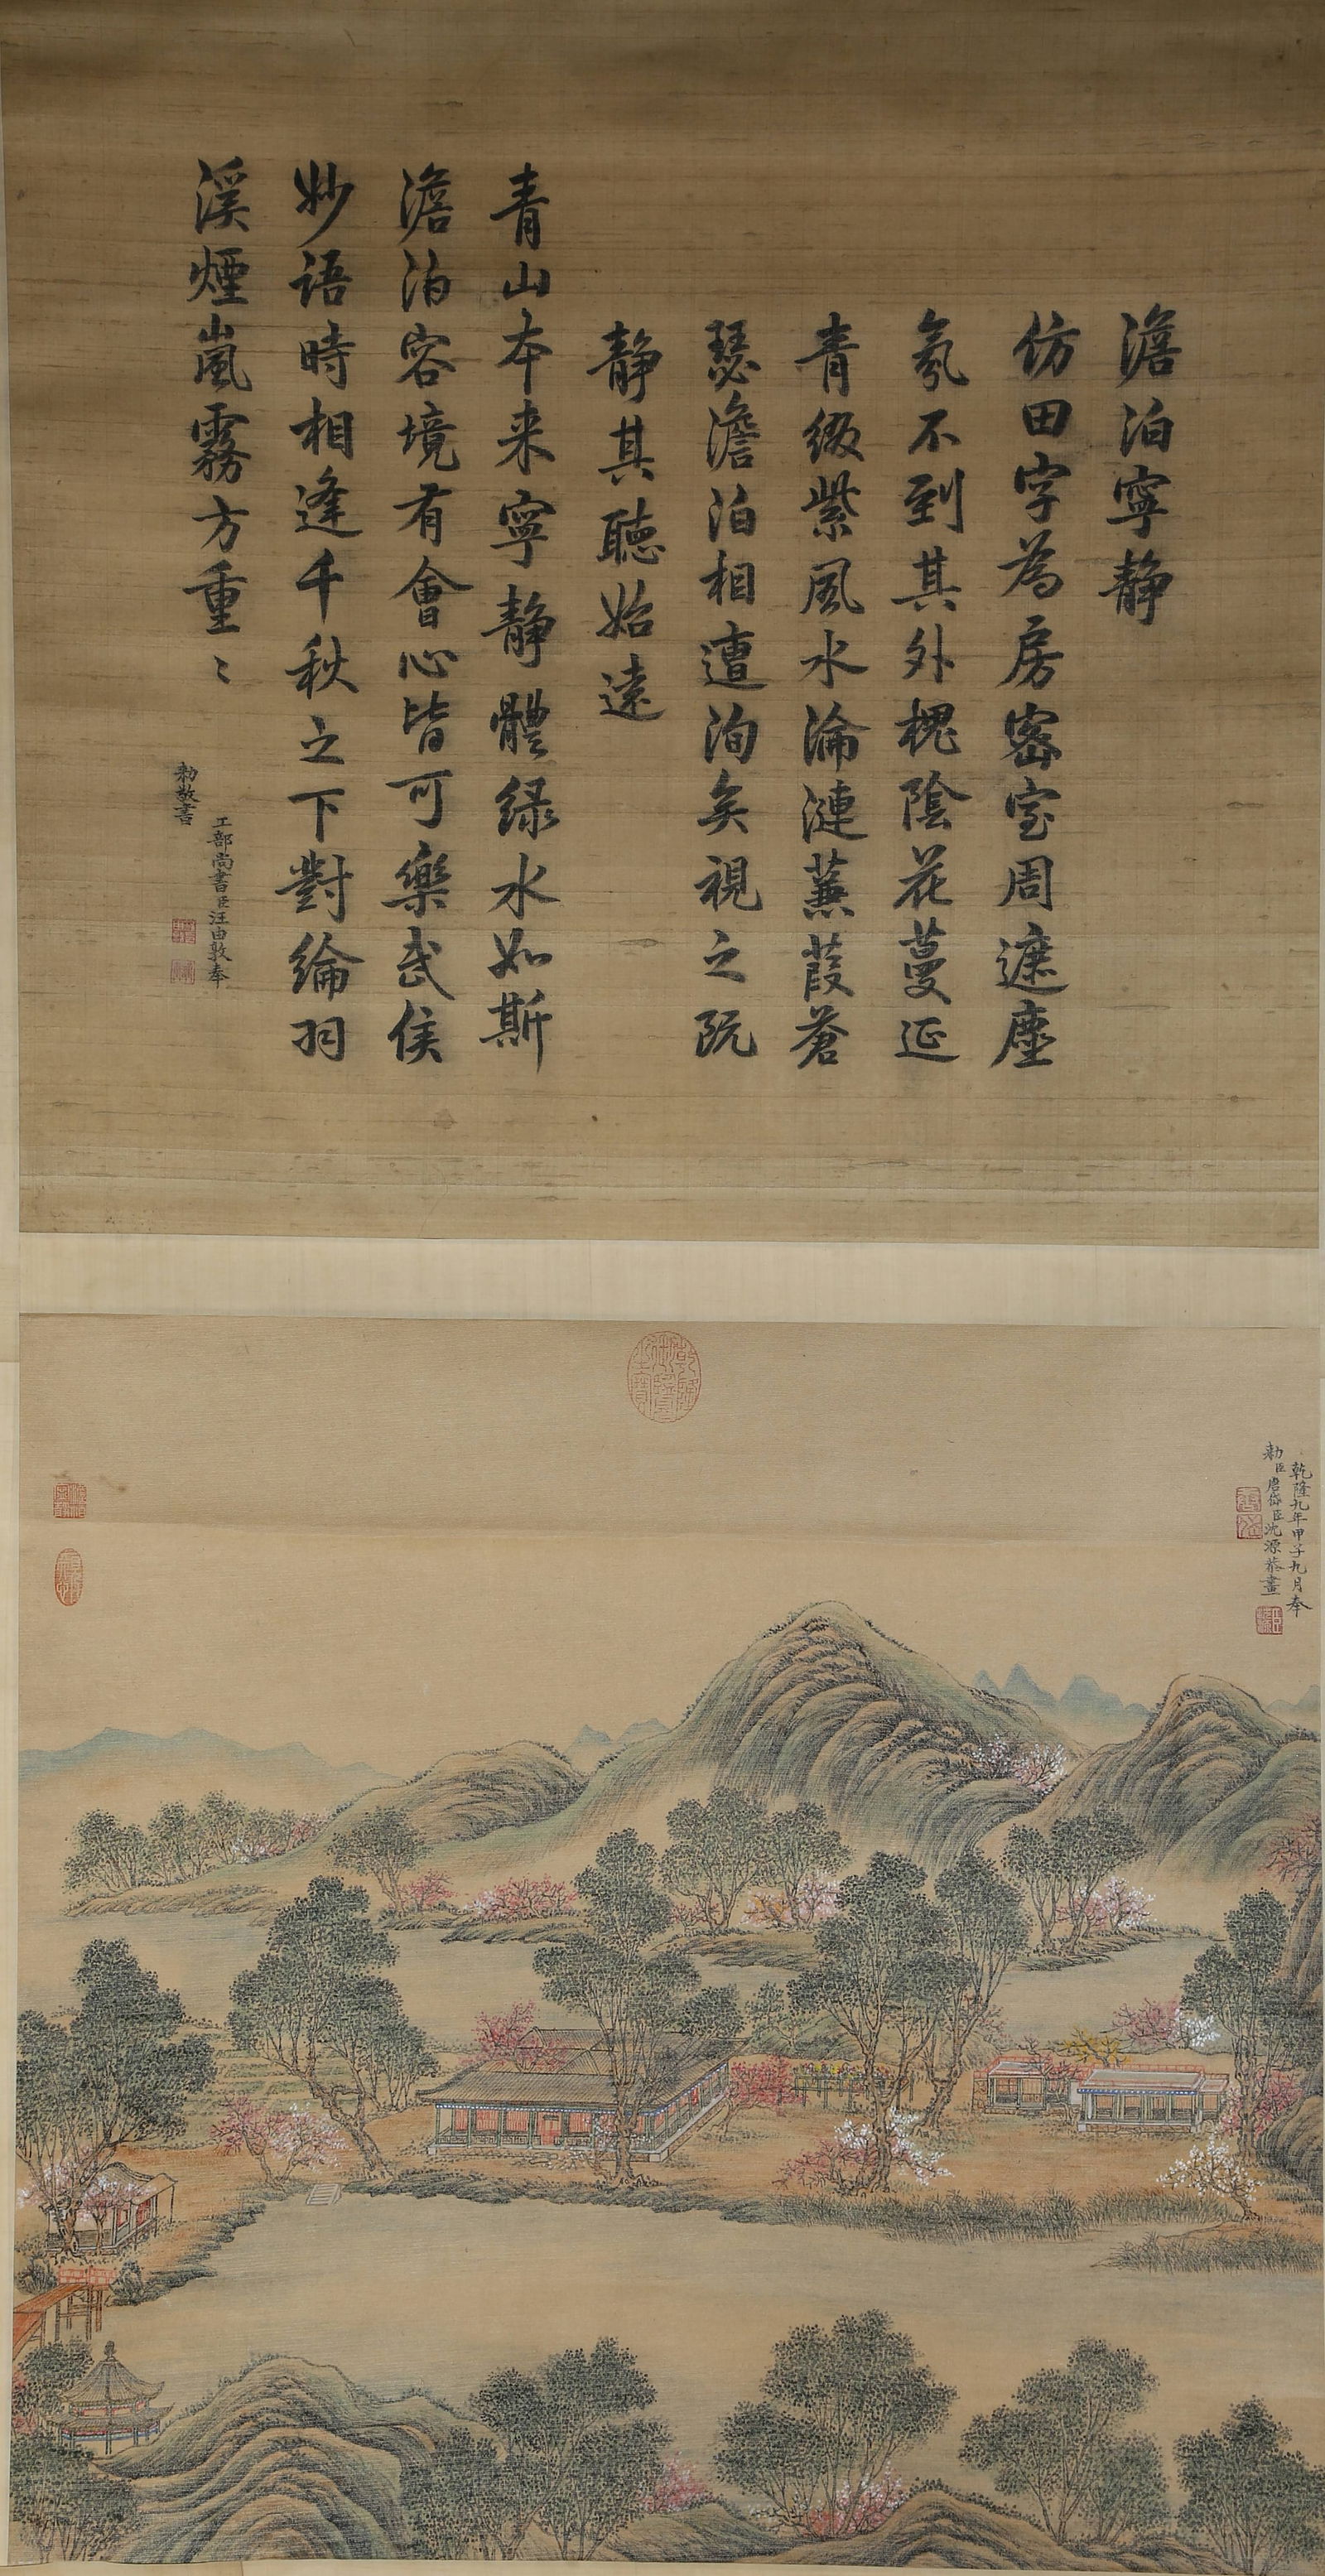 澹泊寧靜
仿田字為房密室周遮塵
氛不到其外槐陰花蔓延
青綴紫風水淪漣蒹葭蒼
瑟澹泊相遭洵矣視之既
靜其聽始遠
青山本来寧靜體緑水如斯
澹泊容境有會心皆可樂武侯
妙語時相逢千秋之下對綸羽
溪煙嵐霧方重〻
工部尚書臣汪由敦奉
勅敬書
乾隆九年甲子九月奉
勅臣唐岱臣沈源恭畫